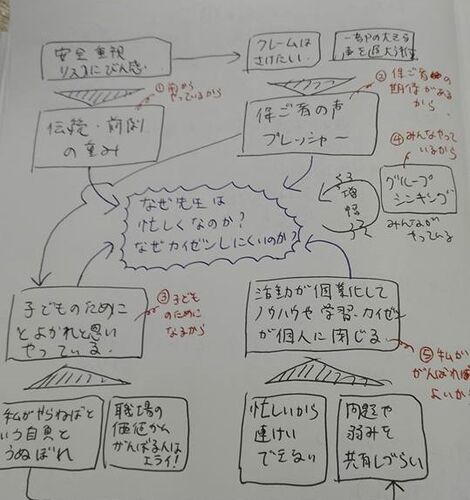 安全重視
リスクにびん感.
クレームは
さけたい.
一部の大きな
声を過大視
①昔から
やっているから
伝統・前例
の重み
②保ご者の
期待がある
から.
保ご者の声
プレッシャー
④みんなやって
いるから
グループ
シンキング
みんなが
やっている
増
幅
なぜ先生は
忙しくなのか?
なぜカイゼンしにくいのか?
子どものために
とよかれと思い
やっている.
③子ども
のために
なるから
活動が個業化して
ノウハウや学習・カイゼン
が個人に閉じる
⑤私が
がんばれば
よいか
私がやらねばと
いう自負と
うぬぼれ
職場の
価値から
がんばる人は
エライ!
忙しいから
連けい
できない
問題や
弱みを
共有しづらい